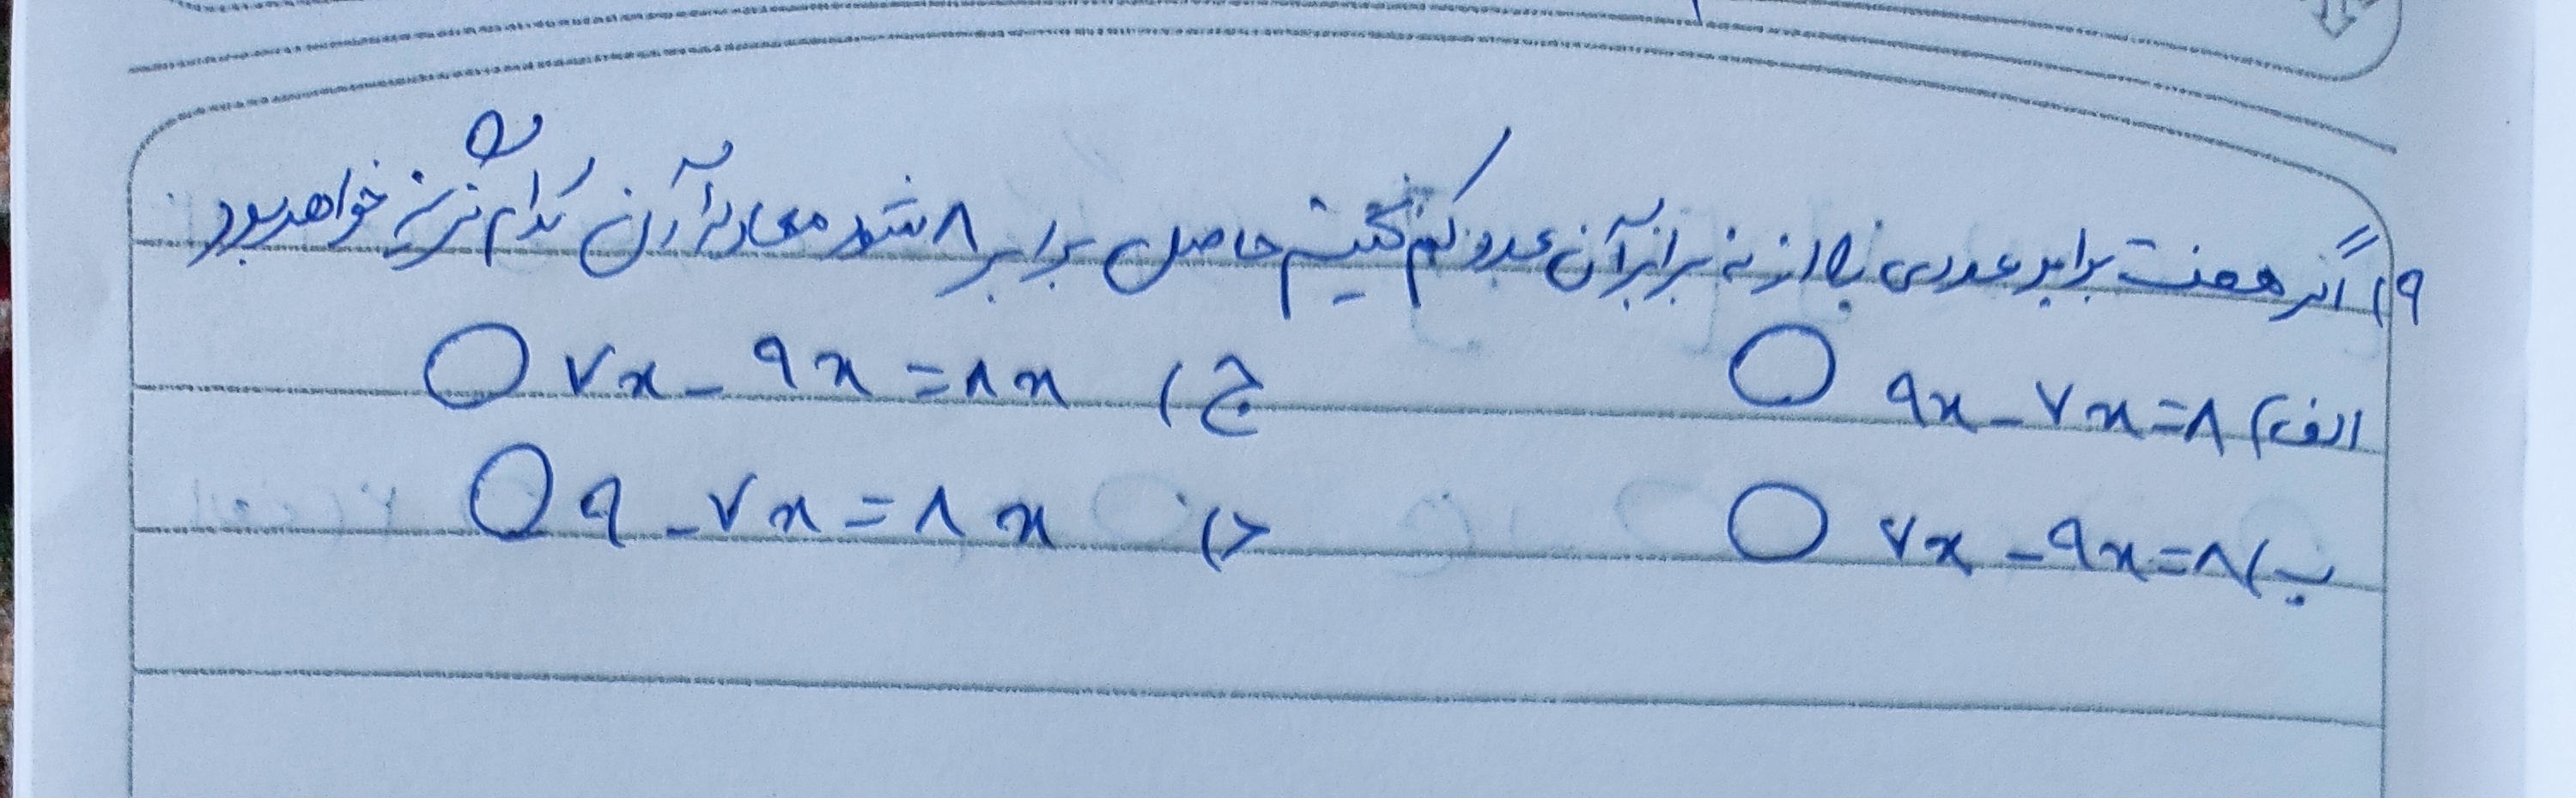 ۹) اگر هفت برابر عددی را از نه برابر آن عدد کم کنیم حاصل برابر ۸ شود معادله آن کدام گزینه خواهد بود
الف) ۹x - ۷x = ۸
ج) ۷x - ۹x = ۸x
ب) ۷x - ۹x = ۸
د) ۹ - ۷x = ۸x